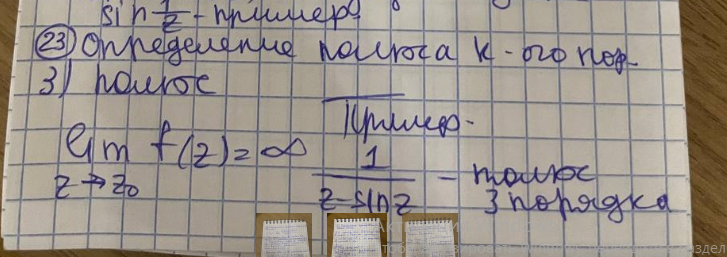 sin 1/z - пример
(23) Определение полюса к-ого пор.
3) полюс
Пример.
lim f(z) = ∞
z→z₀
1/(z-sin z) - полюс
3 порядка